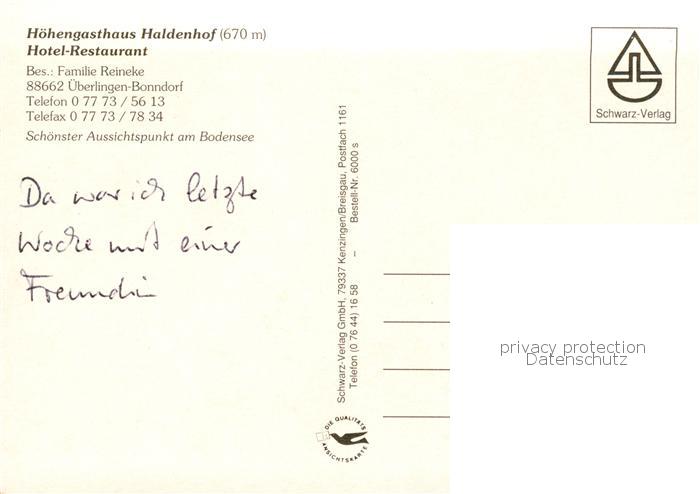 Höhengasthaus Haldenhof (670 m)
Hotel-Restaurant
Bes.: Familie Reineke
88662 Überlingen-Bonndorf
Telefon 0 77 73 / 56 13
Telefax 0 77 73 / 78 34
Schönster Aussichtspunkt am Bodensee
Da war ich letzte
Woche mit einer
Freundin
Schwarz-Verlag GmbH, 79337 Kenzingen/Breisgau, Postfach 1161
Telefon (0 76 44) 16 58 – Bestell-Nr. 6000 s
DIE QUALITÄTS
ANSICHTSKARTE
Schwarz-Verlag
privacy protection
Datenschutz